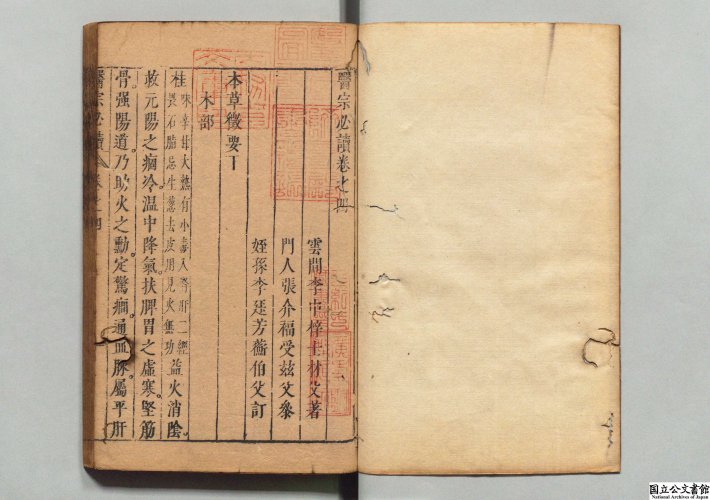 醫宗必讀卷之四
雲間李中梓士材父著
門人張介福受兹父參
姪孫李廷芳伯父訂
本草徵要下
木部
桂味辛甘大熱有小毒入腎肝二經
畏石脂忌生葱去皮用見火無功
益火消陰
救元陽之痼冷。温中降氣。扶脾胃之虛寒。堅筋
骨。强陽道。乃助火之勳。定驚癇。通血脉。屬平肝
醫宗必讀 卷之四
国立公文書館
National Archives of Japan